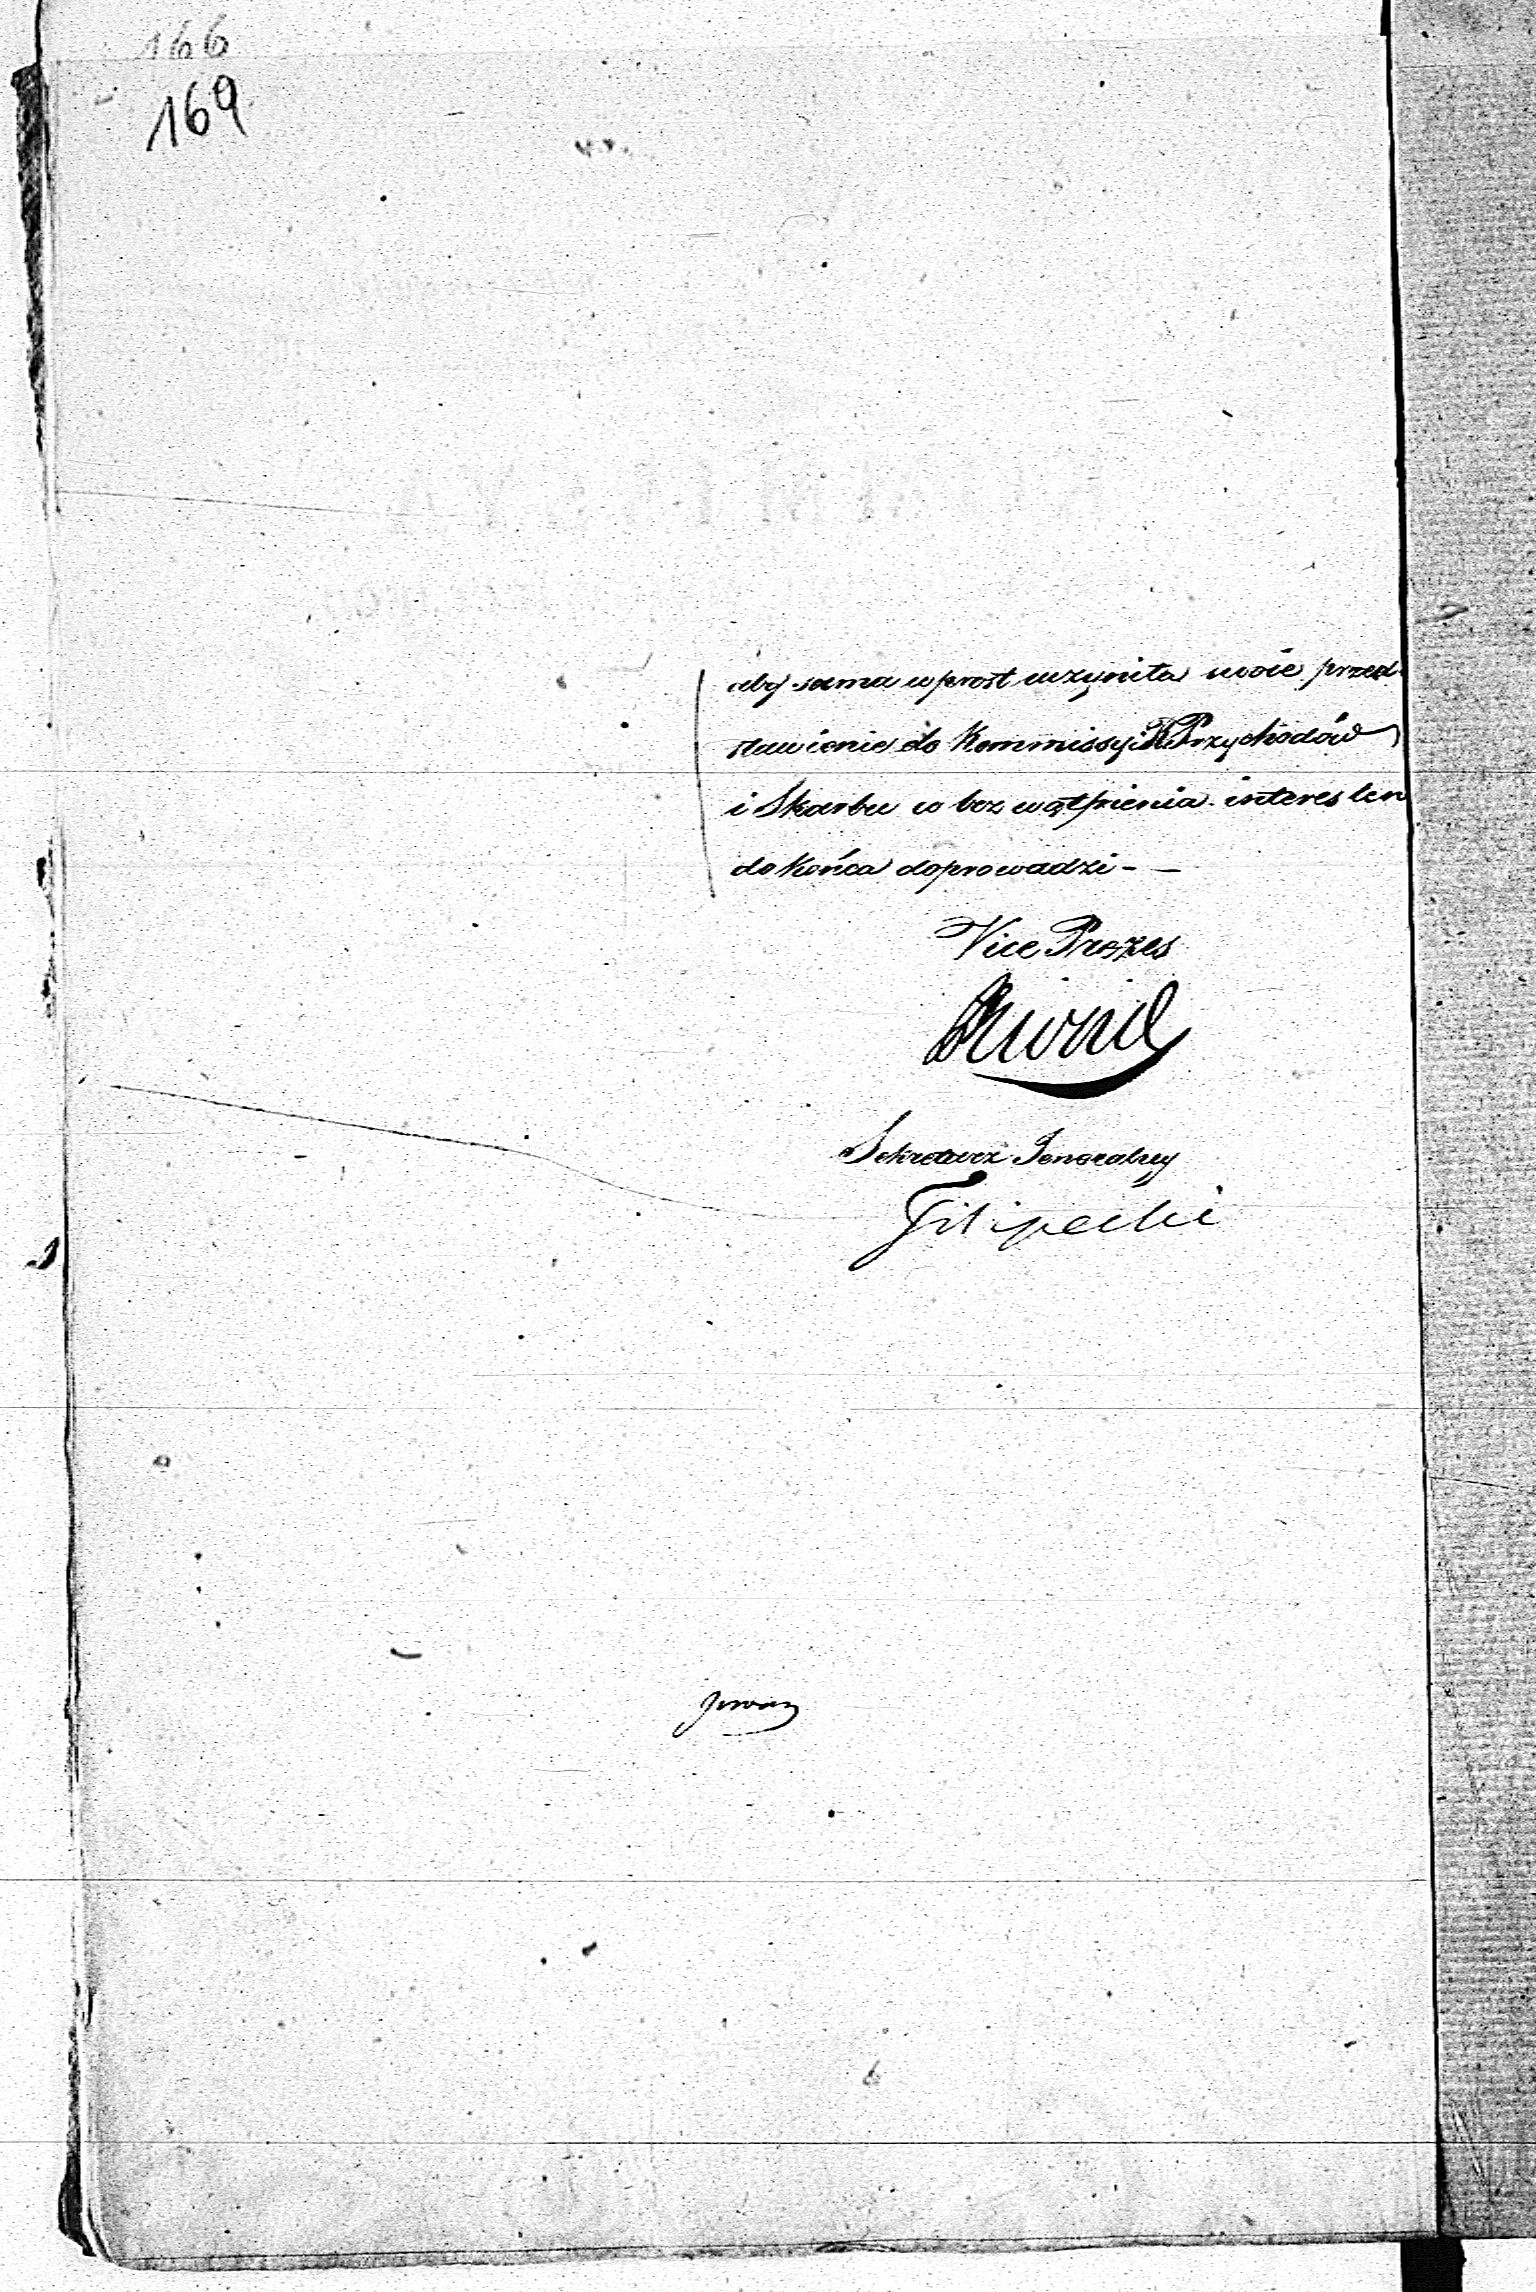 166
169
aby sama wprost uczyniła swoie przed-
stawienie do Kommissyi R. Przychodów
i Skarbu w bez wątpienia interes ten
do Końca doprowadzi - —
Vice Prezes
Sekretarz Jeneralny
Filipecki